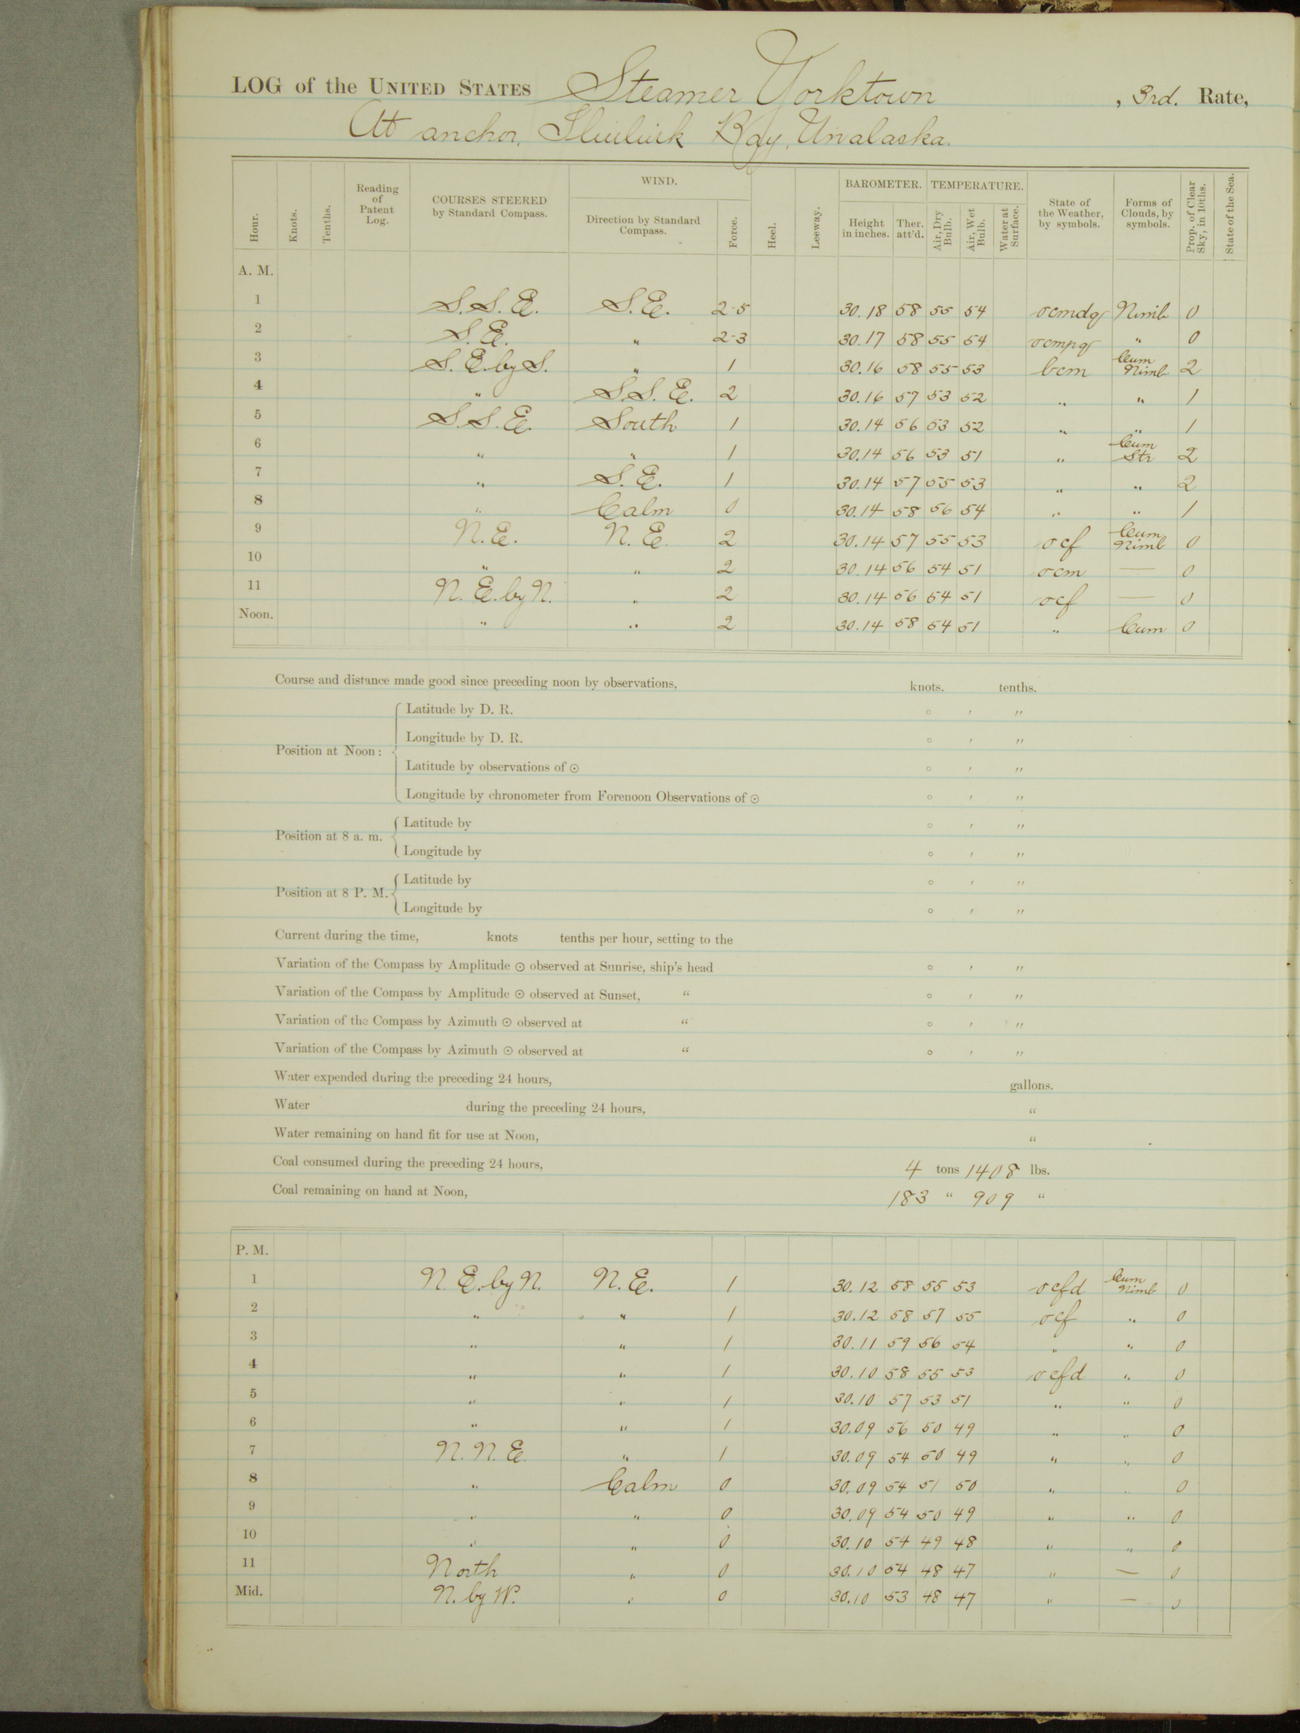 LOG of the UNITED STATES Steamer Yorktown, 3rd. Rate,
At anchor, Iliuliuk Bay, Unalaska.
Hour. Knots. Tenths. Reading of Patent Log. COURSES STEERED by Standard Compass. WIND. Direction by Standard Compass. Force. Heel. Leeway. BAROMETER. Height in inches. Ther. att'd. TEMPERATURE. Air, Dry Bulb. Air, Wet Bulb. Water at Surface. State of the Weather, by symbols. Forms of Clouds, by symbols. Prop. of Clear Sky, in 10ths. State of the Sea.
A. M.
1 S.S.E. S.E. 2-5 30.18 58 55 54 ocmdq Nimb 0
2 S.E. " 2-3 30.17 58 55 54 ocmpq " 0
3 S.E. by S. " 1 30.16 58 55 53 bcm Cum Nimb 2
4 " S.S.E. 2 30.16 57 53 52 " " 1
5 S.S.E. South 1 30.14 56 53 52 " " 1
6 " " 1 30.14 56 53 51 " Cum Str 2
7 " S.E. 1 30.14 57 55 53 " " 2
8 " Calm 0 30.14 58 56 54 " " 1
9 N.E. N.E. 2 30.14 57 55 53 ocf Cum Nimb 0
10 " " 2 30.14 56 54 51 ocm — 0
11 N.E. by N. " 2 30.14 56 54 51 ocf — 0
Noon. " " 2 30.14 58 54 51 " Cum 0
Course and distance made good since preceding noon by observations, knots. tenths.
Position at Noon:
Latitude by D. R. ° ' "
Longitude by D. R. ° ' "
Latitude by observations of ☉ ° ' "
Longitude by chronometer from Forenoon Observations of ☉ ° ' "
Position at 8 a. m.
Latitude by ° ' "
Longitude by ° ' "
Position at 8 P. M.
Latitude by ° ' "
Longitude by ° ' "
Current during the time, knots tenths per hour, setting to the
Variation of the Compass by Amplitude ☉ observed at Sunrise, ship's head ° ' "
Variation of the Compass by Amplitude ☉ observed at Sunset, " ° ' "
Variation of the Compass by Azimuth ☉ observed at " ° ' "
Variation of the Compass by Azimuth ☉ observed at " ° ' "
Water expended during the preceding 24 hours, gallons.
Water during the preceding 24 hours, "
Water remaining on hand fit for use at Noon, "
Coal consumed during the preceding 24 hours, 4 tons 1408 lbs.
Coal remaining on hand at Noon, 183 " 909 "
P. M.
1 N.E. by N. N.E. 1 30.12 58 55 53 ocfd Cum Nimb 0
2 " " 1 30.12 58 57 55 ocf " 0
3 " " 1 30.11 59 56 54 " " 0
4 " " 1 30.10 58 55 53 ocfd " 0
5 " " 1 30.10 57 53 51 " " 0
6 " " 1 30.09 56 50 49 " " 0
7 N.N.E. " 1 30.09 54 50 49 " " 0
8 " Calm 0 30.09 54 51 50 " " 0
9 " " 0 30.09 54 50 49 " " 0
10 " " 0 30.10 54 49 48 " " 0
11 North " 0 30.10 54 48 47 " — 0
Mid. N. by W. " 0 30.10 53 48 47 " — 0